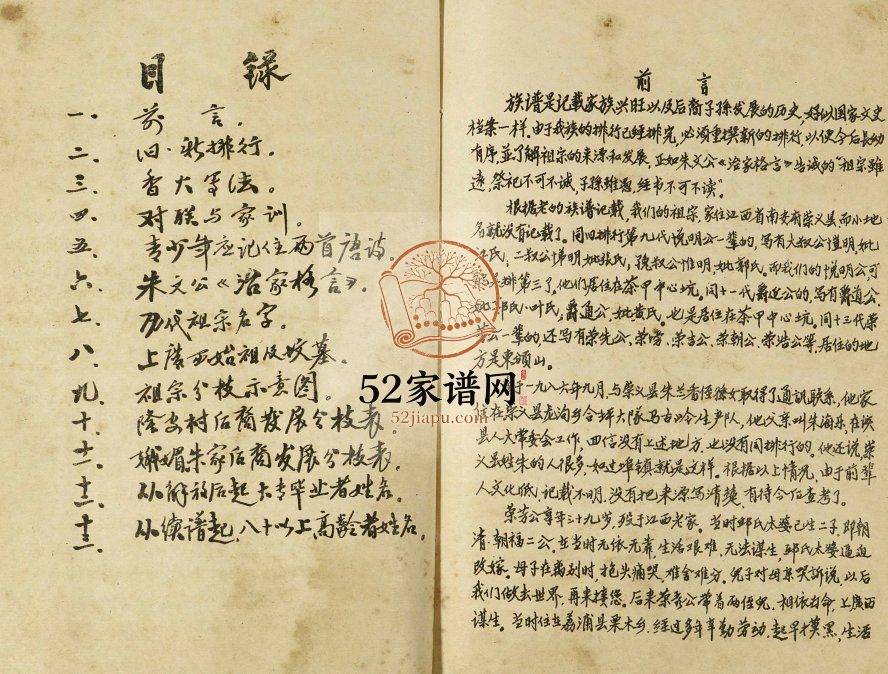 目 录
一、 前 言。
二、 旧·新排行。
三、 香火写法。
四、 对联与家训。
五、 青少年应记住两首语诗。
六、 朱文公《治家格言》。
七、 历代祖宗名字。
八、 上广西始祖及坟墓。
九、 祖宗分枝示意图。
十、 隆安村后裔发展分枝表。
十一、 峨嵋朱家后裔发展分枝表。
十二、 从解放后起大专毕业者姓名。
十三、 从续谱起，八十以上高龄者姓名。
前 言
族谱是记载家族兴旺以及后裔子孫发展的历史，好似国家文史
档案一样。由于我族的排行已经排完，必须重撰新的排行，以便今后長幼
有序，並了解祖宗的来源和发展。正如朱文公《治家格言》告诫的“祖宗雖
遠，祭祀不可不诚，子孫雖愚，经书不可不读”。
根据老的族谱记载，我们的祖宗，家住江西省南安府崇义县，而小地
名就没有记载了。同旧排行第九代说明公一輩的，写有大叔公惟明，妣
江氏，二叔公悌明，妣张氏，叔公惟明，妣郭氏。而我们的悦明公可
排第三了。他们居住在茶甲中心坑。同十一代爵近公的，写有爵道公，
妣邓氏、叶氏，爵通公，妣黄氏。也是居住在茶甲中心坑。同十三代荣
芳公一輩的，还写有荣先公、荣塝、荣吉公、荣朝公、荣浩公等，居住的地
方是東頒山。
于一九八六年九月，与崇义县朱兰香侄孫女取得了通訊联系，他家
住在崇义县龙沟乡合坪大隊马古岭生产队，他父亲叫朱海乐，在埉
县人大常委会工作，回信没有上述地方，也没有同排行的，他还说崇
义县姓朱的人很多，如过埠镇就是这样。根据以上情况，由于前輩
人文化低，记载不明，没有把来源写清楚，有待今后查考了。
荣芳公享年三十九岁，殁于江西老家。当时邱氏太婆已生二子，即朝
清、朝福二公，在当时无依无靠，生活艰难，无法谋生，邱氏太婆逼迫
改嫁。母子在离别时，抱头痛哭，难舍难分。兒子对母亲哭訴说，以后
我们做出世界，再来接您。后来荣秀公带着两侄兒，相依为命，上广西
谋生。当时住在荔浦县栗木乡，经过多年辛勤劳动，起早摸黑，生活
52家谱网
52jiapu.com